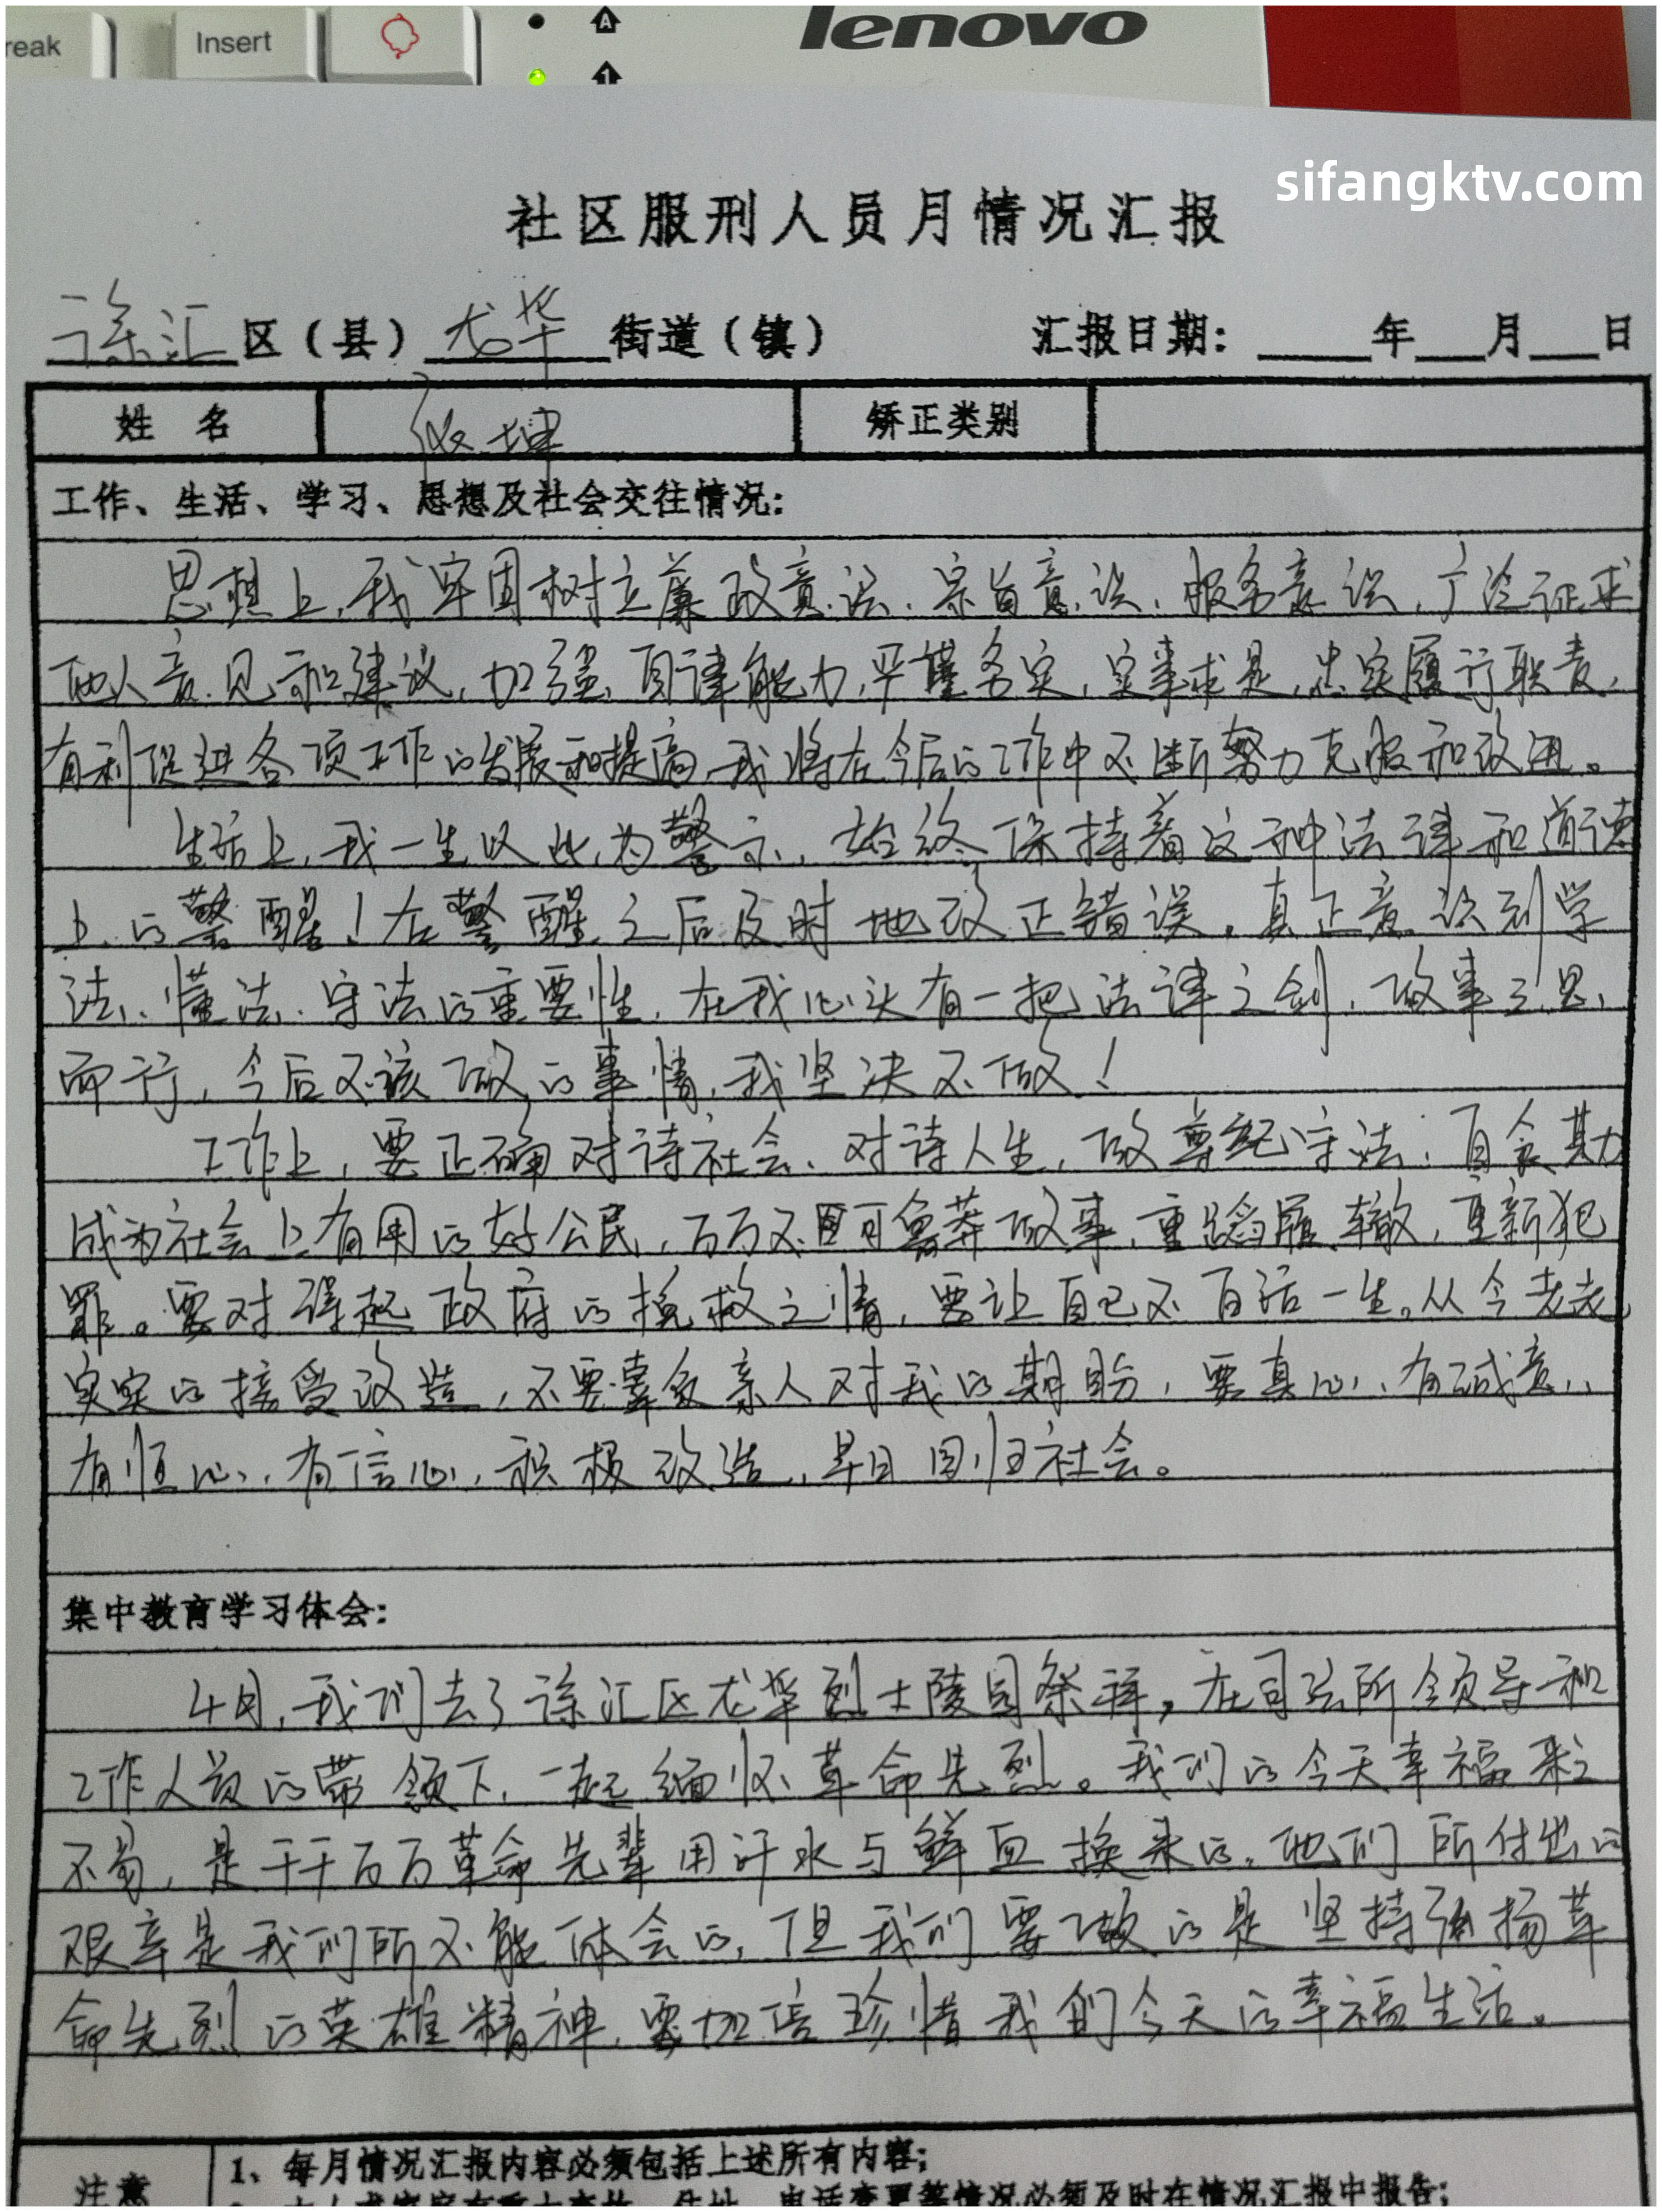 reak
Insert
A
1
lenovo
sifangktv.com
社区服刑人员月情况汇报
徐汇区（县）龙华街道（镇） 汇报日期：年月日
姓 名 张坤 矫正类别
工作、生活、学习、思想及社会交往情况：
思想上，我牢固树立廉政意识、宗旨意识、服务意识，广泛征求
他人意见和建议，加强自律能力，严谨务实，实事求是，忠实履行职责，
有利促进各项工作的发展和提高，我将在今后的工作中不断努力克服和改进。
生活上，我一生以此为警示，始终保持着这种法律和道德
上的警醒！在警醒之后及时地改正错误。真正意识到学
法、懂法、守法的重要性，在我心头有一把法律之剑，做事三思
而行，今后不该做的事情，我坚决不做！
工作上，要正确对待社会、对待人生，做尊纪守法；自食其力
成为社会上有用的好公民，万万不可鲁莽做事，重蹈履辙，重新犯
罪。要对得起政府的挽救之情，要让自己不百活一生。从今老老
实实的接受改造，不要辜负亲人对我的期盼，要真心、有诚意、
有恒心、有信心，积极改造，早日回归社会。
集中教育学习体会：
4月，我们去了徐汇区龙华烈士陵园祭拜，在司法所领导和
工作人员的带领下，一起缅怀革命先烈。我们的今天幸福来之
不易，是千千万万革命先辈用汗水与鲜血换来的。他们所付出的
艰辛是我们所不能体会的，但我们要做的是坚持弘扬革
命先烈的英雄精神，要加倍珍惜我们今天的幸福生活。
注意
1、每月情况汇报内容必须包括上述所有内容；
住址、电话变更等情况必须及时在情况汇报中报告；